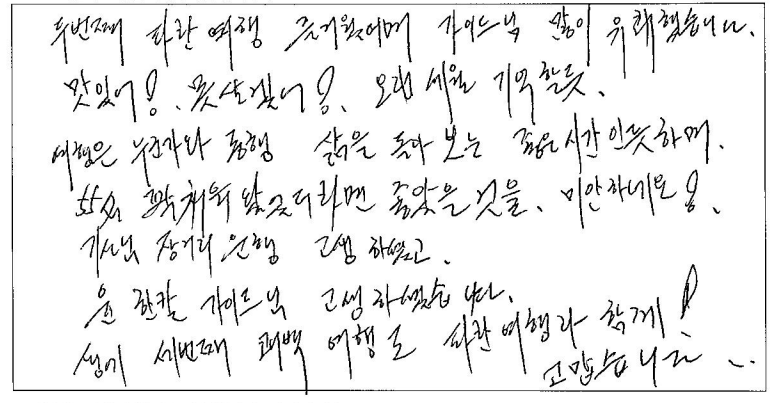 두번째 파란 여행 즐거웠으며 가이드님 많이 유쾌했습니다.
맛있어! 못살겠어! 오랜 세월 기억할듯.
여행은 누군가와 동행 삶을 돌아 보는 좋은 시간인듯하며.
55석 꽉 채워 왔었더라면 좋았을 것을. 미안하네요!
기사님 장거리 운행 고생 하셨고.
윤 한칼 가이드님 고생하셨습니다.
생에 세번째 태백 여행도 파란여행과 함께!
고맙습니다